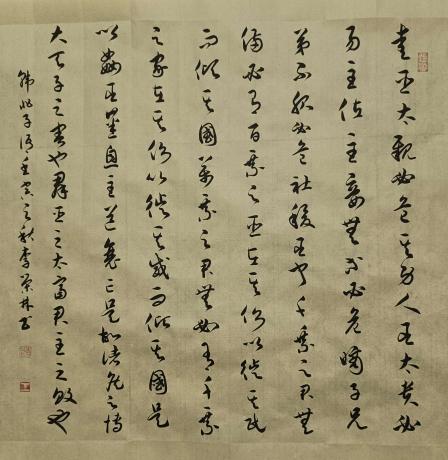 愛臣太親必危其身人臣太貴必
易主位主妾無等必危嫡子兄
弟不服必危社稷臣千乘之君無
備必有百乘之臣在其側以徙其民
而傾其國萬乘之君無有千乘
之家在其側以徙其威而傾其國是
以姦臣蕃息主道衰亡是故諸侯之博
大天子之害也群臣之太富君主之敗也
韓非子壬寅之秋李榮林書